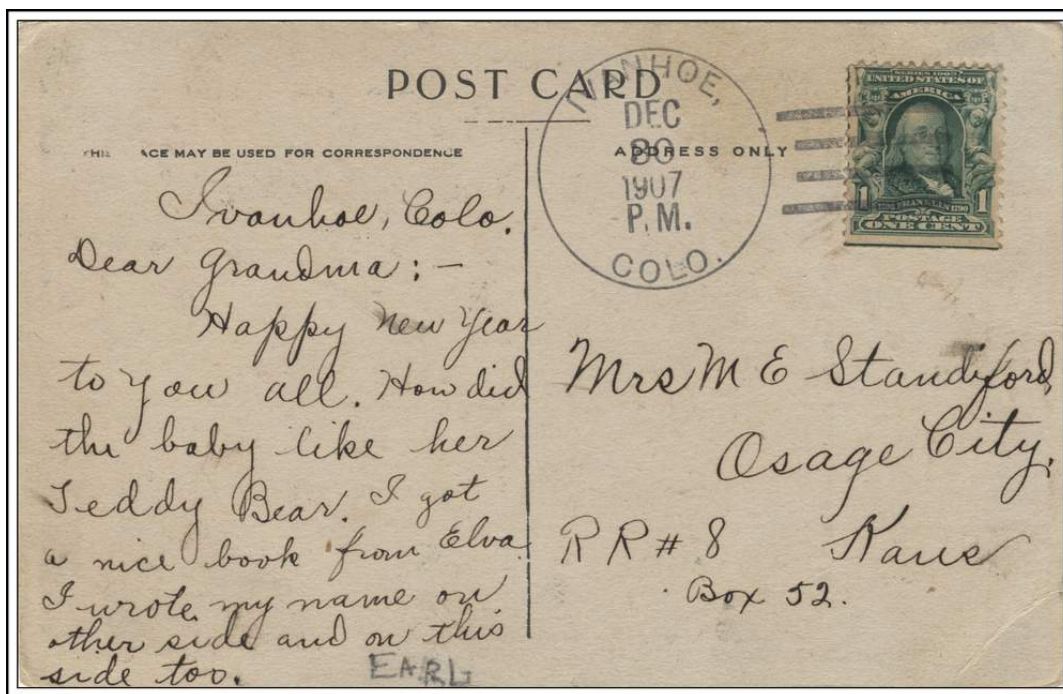 POST CARD
ACE MAY BE USED FOR CORRESPONDENCE
ADDRESS ONLY
IVANHOE,
DEC
30
1907
P.M.
COLO.
SERIES 1902
UNITED STATES OF
AMERICA
1 FRANKLIN 1790 1
POSTAGE
ONE CENT
Ivanhoe, Colo.
Dear Grandma: —
Happy New Year
to you all. How did
the baby like her
Teddy Bear. I got
a nice book from Elva
I wrote my name on
other side and on this
side too.
EARL
Mrs M E Standiford,
Osage City,
RR # 8 Kans
Box 52.